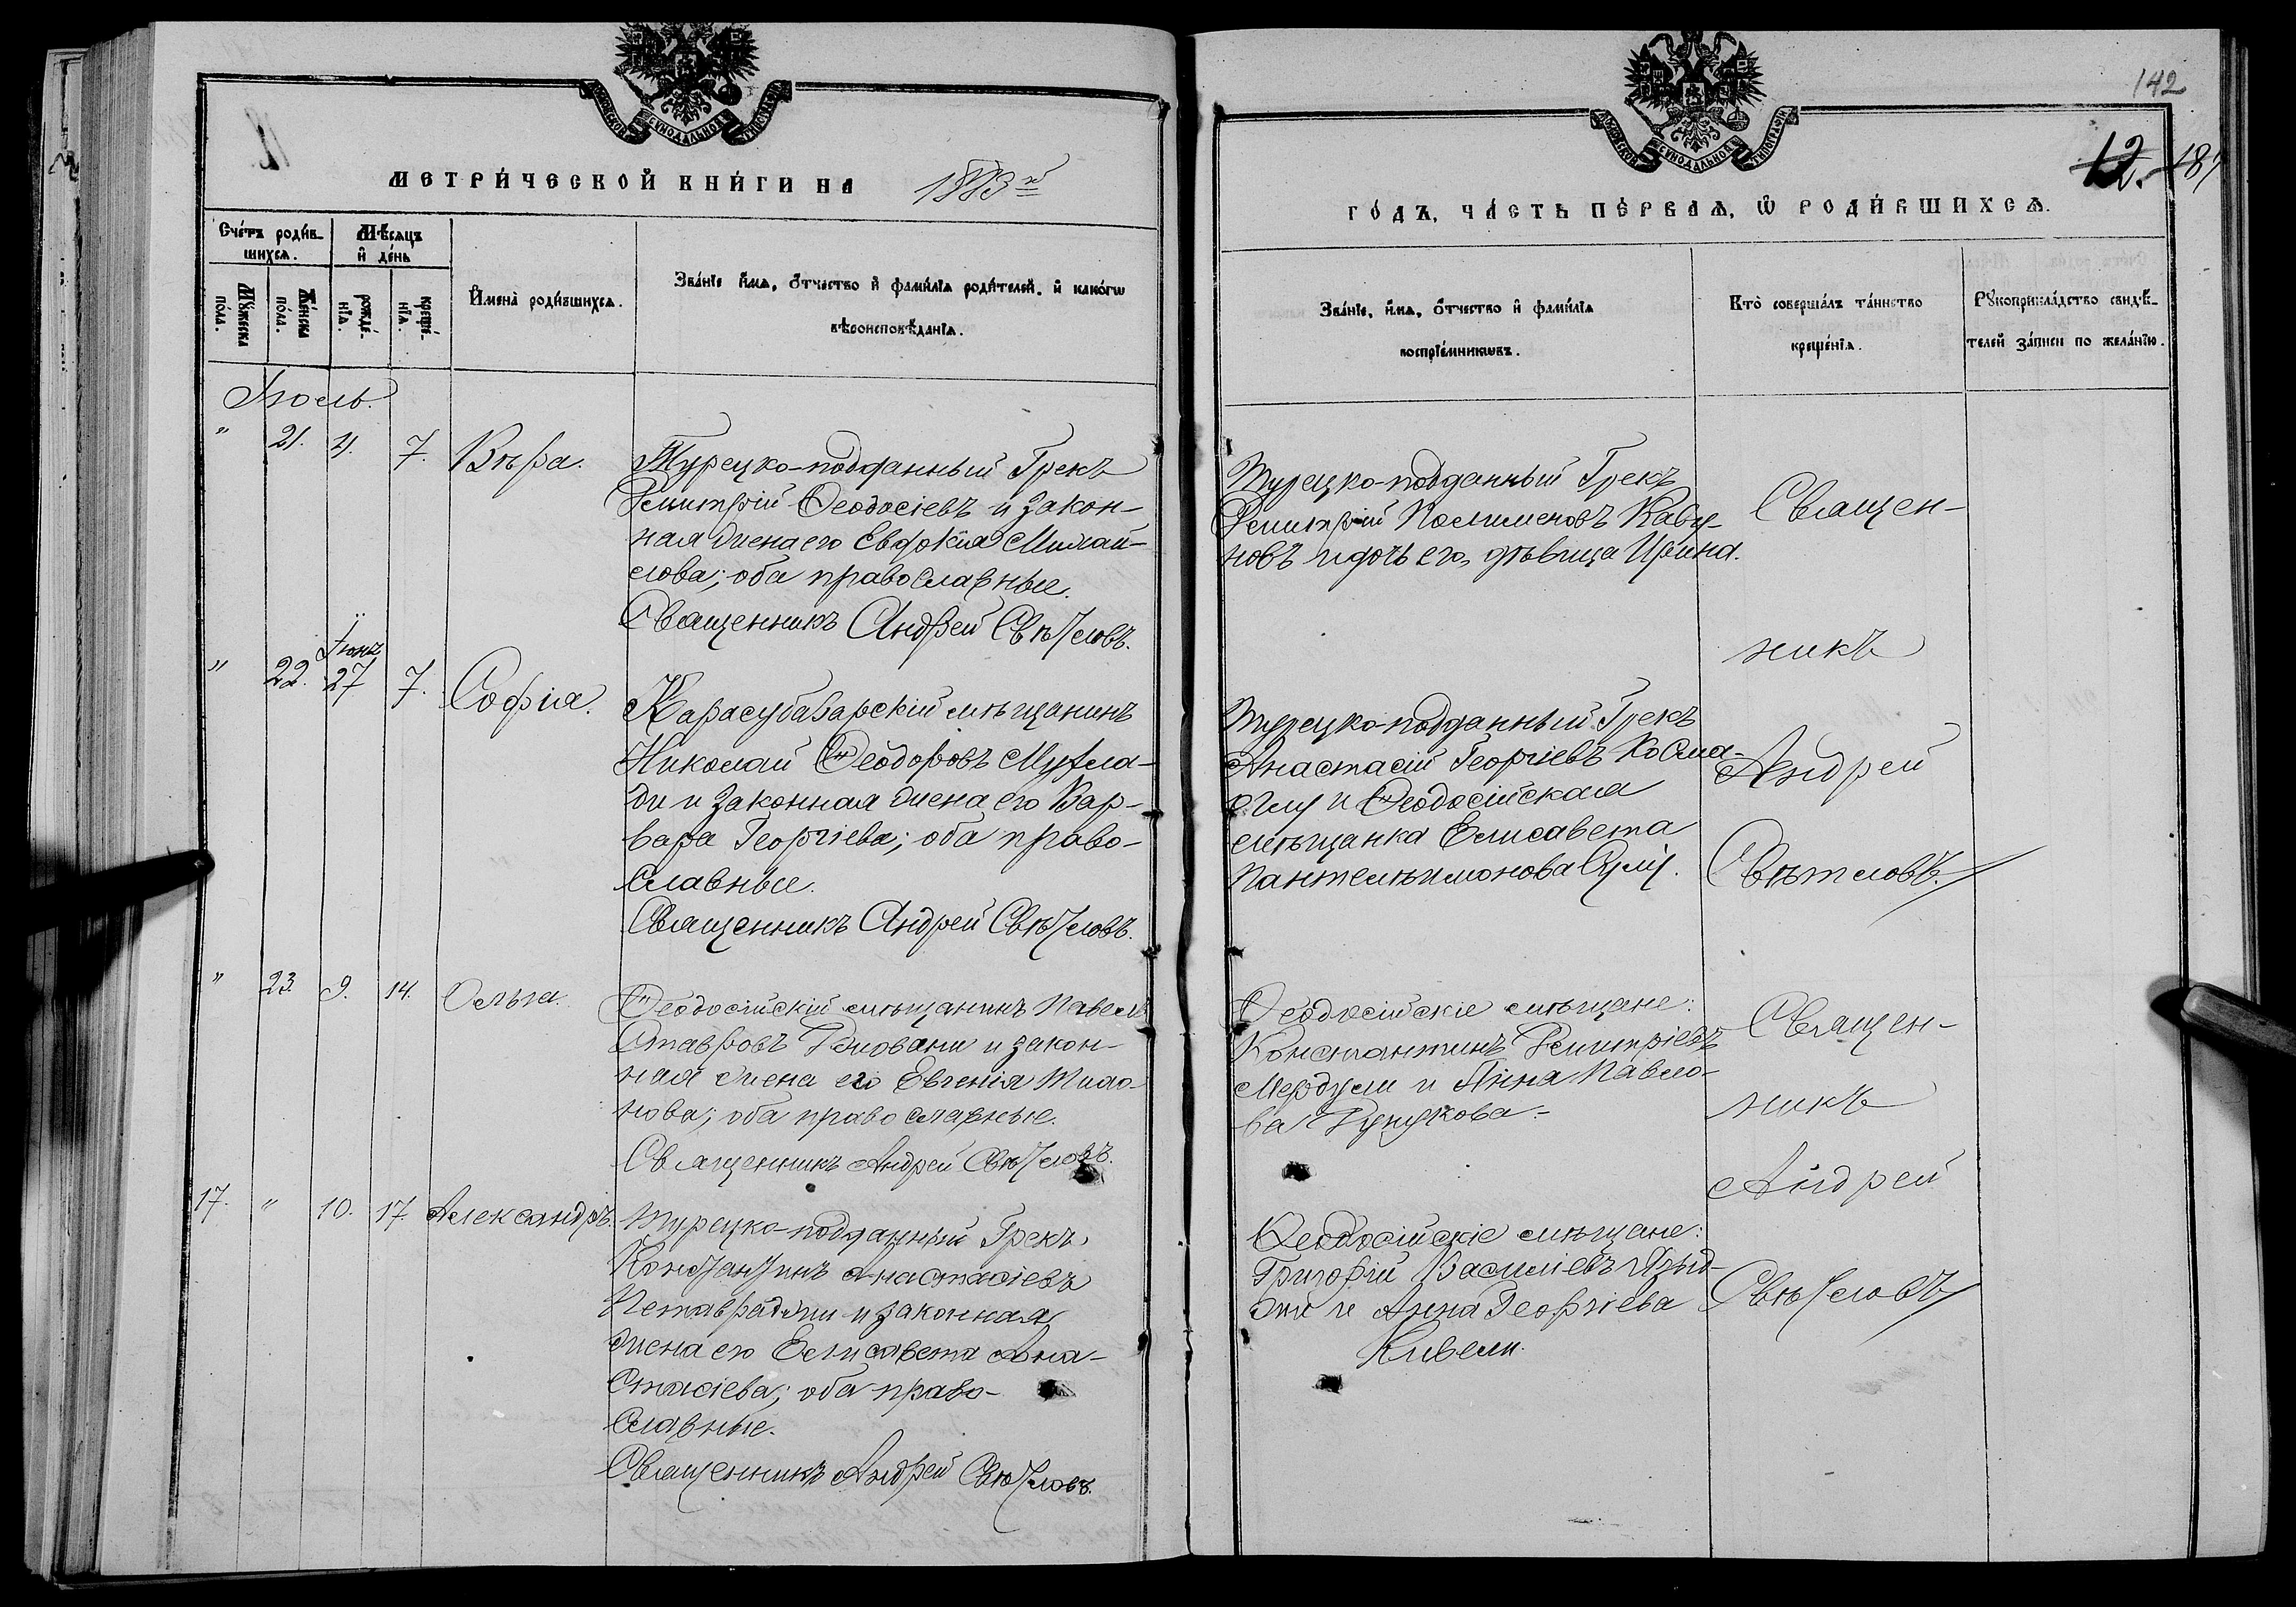 142
12. 187
МЕТРИЧЕСКОЙ КНИГИ НА 1883 й
ГОДЪ, ЧАСТЬ ПЕРВАЯ, Ѡ РОДИВШИХСЯ.
Счетъ родив-
шихся.
Мѣсяцъ
и день
Мужеска
пола.
Женска
пола.
рожде-
нія.
креще-
нія.
Имена родившихся.
Званіе имя, отчество и фамилія родителей, и какогѡ
вѣроисповѣданія.
Званіе, имя, отчество и фамилія
воспріемникѡвъ.
Кто совершалъ таинство
крещенія.
Рукоприкладство свидѣ-
телей записи по желанію.
Іюль.
" 21. 4. 7. Вѣра.
Турецко-подданный Грекъ
Димитрій Ѳеодосіевъ и закон-
ная жена его Евдокія Михай-
лова; оба православные.
Священникъ Андрей Свѣтловъ.
Турецко-подданный Грекъ
Димитрій Налименовъ Кабу-
новъ и дочь его, дѣвица Ирина.
Священ-
никъ
Андрей
Свѣтловъ.
Іюнь
" 22. 27 7. Софія.
Карасубазарскій мѣщанинъ
Николай Ѳеодоровъ Муфла-
ди и законная жена его Вар-
вара Георгіева; оба право-
славные.
Священникъ Андрей Свѣтловъ.
Турецко-подданный Грекъ
Анастасій Георгіевъ Косма-
оглу и Ѳеодосійская
мѣщанка Елисавета
Пантелѣимонова
" 23. 9. 14. Ольга.
Ѳеодосійскій мѣщанинъ Павелъ
Ставровъ и закон-
ная жена его Евгенія
нова; оба православные.
Священникъ Андрей Свѣтловъ.
Ѳеодосійскіе мѣщане:
Константинъ Димитріевъ
Мердули и Анна Павло-
ва
Священ-
никъ
Андрей
Свѣтловъ
17. " 10. 17. Александръ.
Турецко-подданный Грекъ
Константинъ Анастасіевъ
и законная
жена его Елисавета Ана-
стасіева; оба право-
славные.
Священникъ Андрей Свѣтловъ.
Ѳеодосійскіе мѣщане:
Григорій Василіевъ Языд-
жи и Анна Георгіева
Кивели.